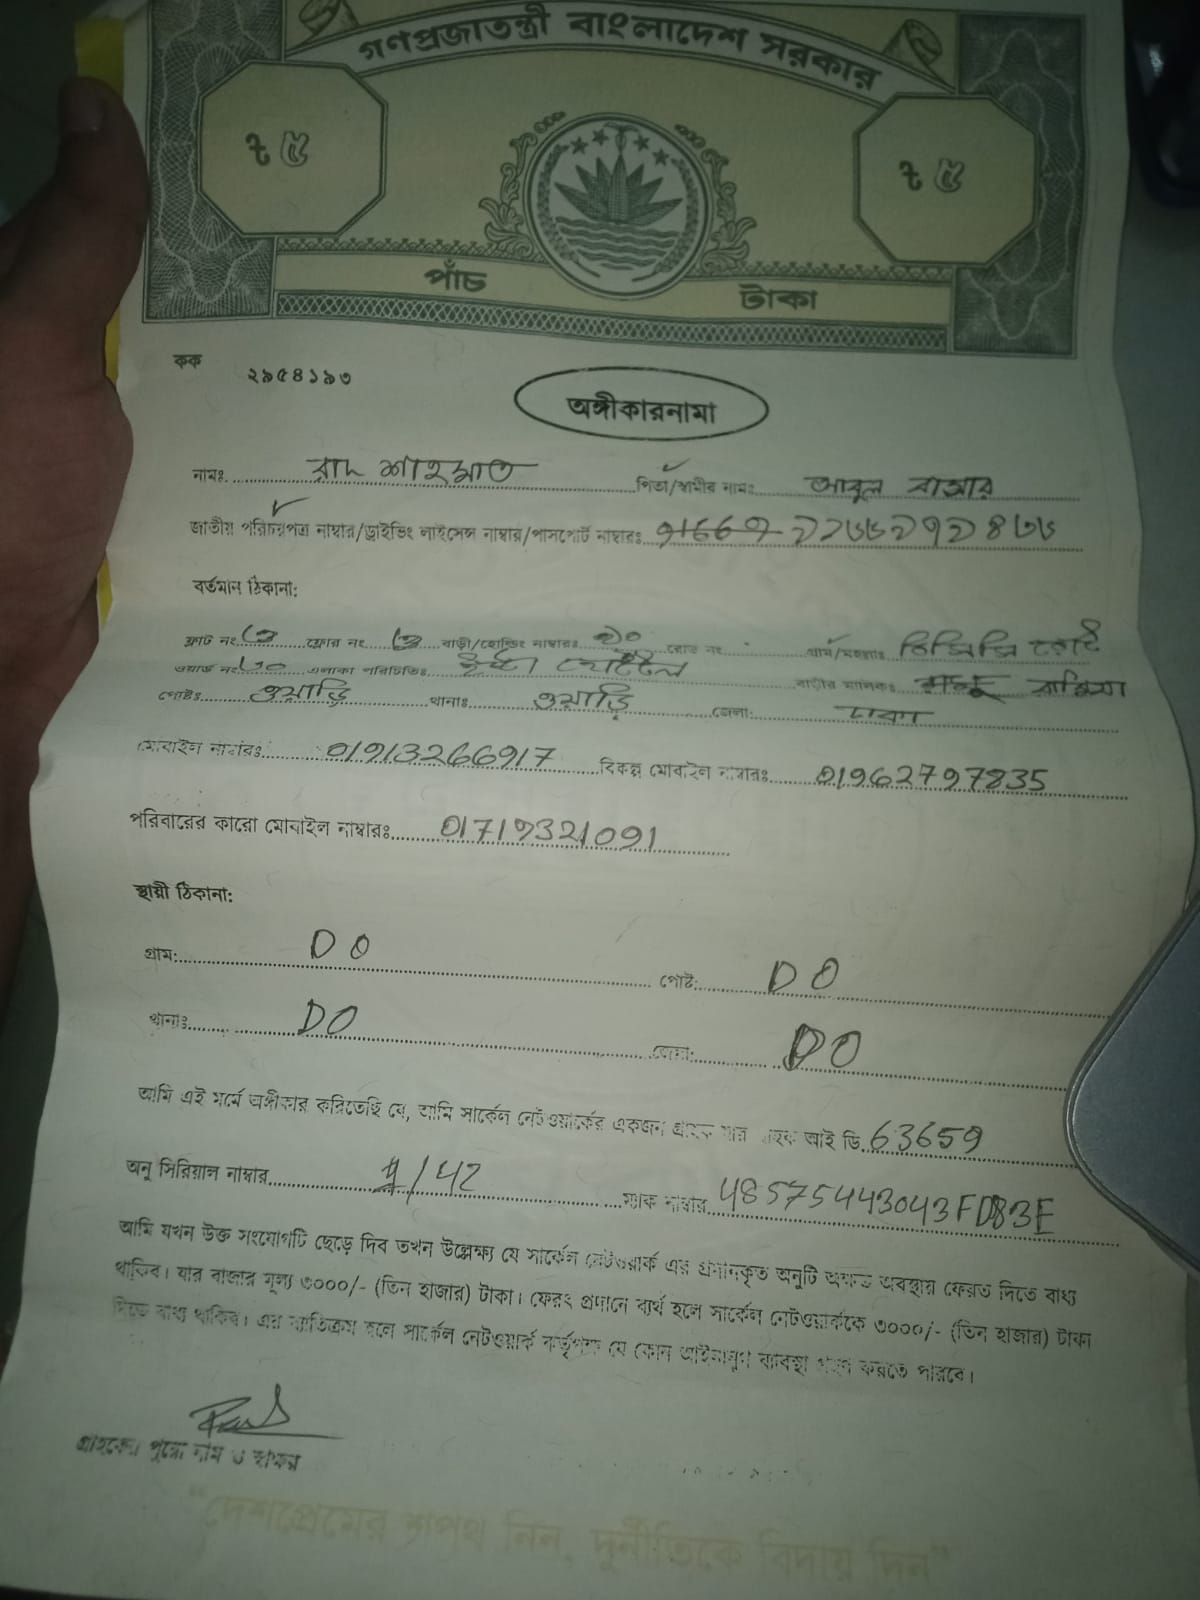 গণপ্রজাতন্ত্রী বাংলাদেশ সরকার
৳ ৫ ৳ ৫
পাঁচ টাকা
কক ২৯৫৪১৯৩
অঙ্গীকারনামা
নামঃ রাদ শাহমাত পিতা/স্বামীর নামঃ আবুল বাসার
জাতীয় পরিচয়পত্র নাম্বার/ড্রাইভিং লাইসেন্স নাম্বার/পাসপোর্ট নাম্বারঃ
বর্তমান ঠিকানা:
ফ্লাট নং ৩ ফ্লোর নং ৩ বাড়ী/হোল্ডিং নাম্বারঃ ১০ রোড নং গ্রাম/মহল্লাঃ বিসিসি রোড
ওয়ার্ড নং এলাকা পরিচিতিঃ হোটেল বাড়ীর মালিকঃ
পোষ্টঃ ওয়ারি থানাঃ ওয়ারি জেলা: ঢাকা
মোবাইল নাম্বারঃ 01913266917 বিকল্প মোবাইল নাম্বারঃ 01962797835
পরিবারের কারো মোবাইল নাম্বারঃ 01719321091
স্থায়ী ঠিকানা:
গ্রাম: DO পোষ্ট: DO
থানাঃ DO জেলা: DO
আমি এই মর্মে অঙ্গীকার করিতেছি যে, আমি সার্কেল নেটওয়ার্কের একজন গ্রাহক যার গ্রাহক আই ডি. 63659
অনু সিরিয়াল নাম্বার /42 ম্যাক নাম্বার 48575443043FD83E
আমি যখন উক্ত সংযোগটি ছেড়ে দিব তখন উল্লেক্ষ্য যে সার্কেল নেটওয়ার্ক এর প্রদানকৃত অনুটি অক্ষত অবস্থায় ফেরত দিতে বাধ্য
থাকিব। যার বাজার মূল্য ৩০০০/- (তিন হাজার) টাকা। ফেরৎ প্রদানে ব্যর্থ হলে সার্কেল নেটওয়ার্ককে ৩০০০/- (তিন হাজার) টাকা
দিতে বাধ্য থাকিব। এর ব্যতিক্রম হলে সার্কেল নেটওয়ার্ক কর্তৃপক্ষ যে কোন আইনানুগ ব্যবস্থা গ্রহণ করতে পারবে।
গ্রাহকের পুরো নাম ও স্বাক্ষর
“দেশপ্রেমের শপথ নিন, দুর্নীতিকে বিদায় দিন”